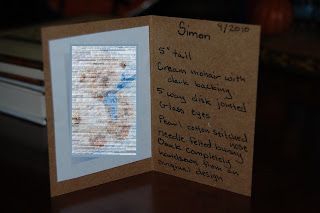 Simon 9/2010
5" tall
Cream mohair with
dark backing
5 way disk jointed
Glass eyes
Pearl cotton stitched
nose
Needle felted bunny
Quak completely
handsewn from an
original design